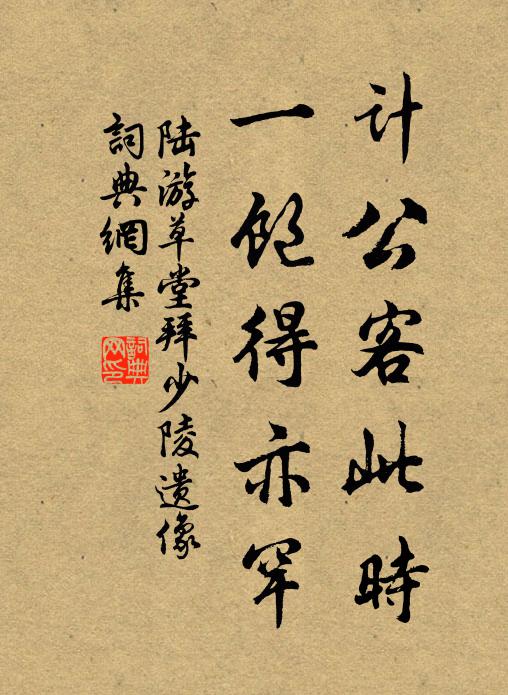 计公客此時
一飽得亦罕
陆游草堂拜少陵遗像
詞典網集
詞典网印